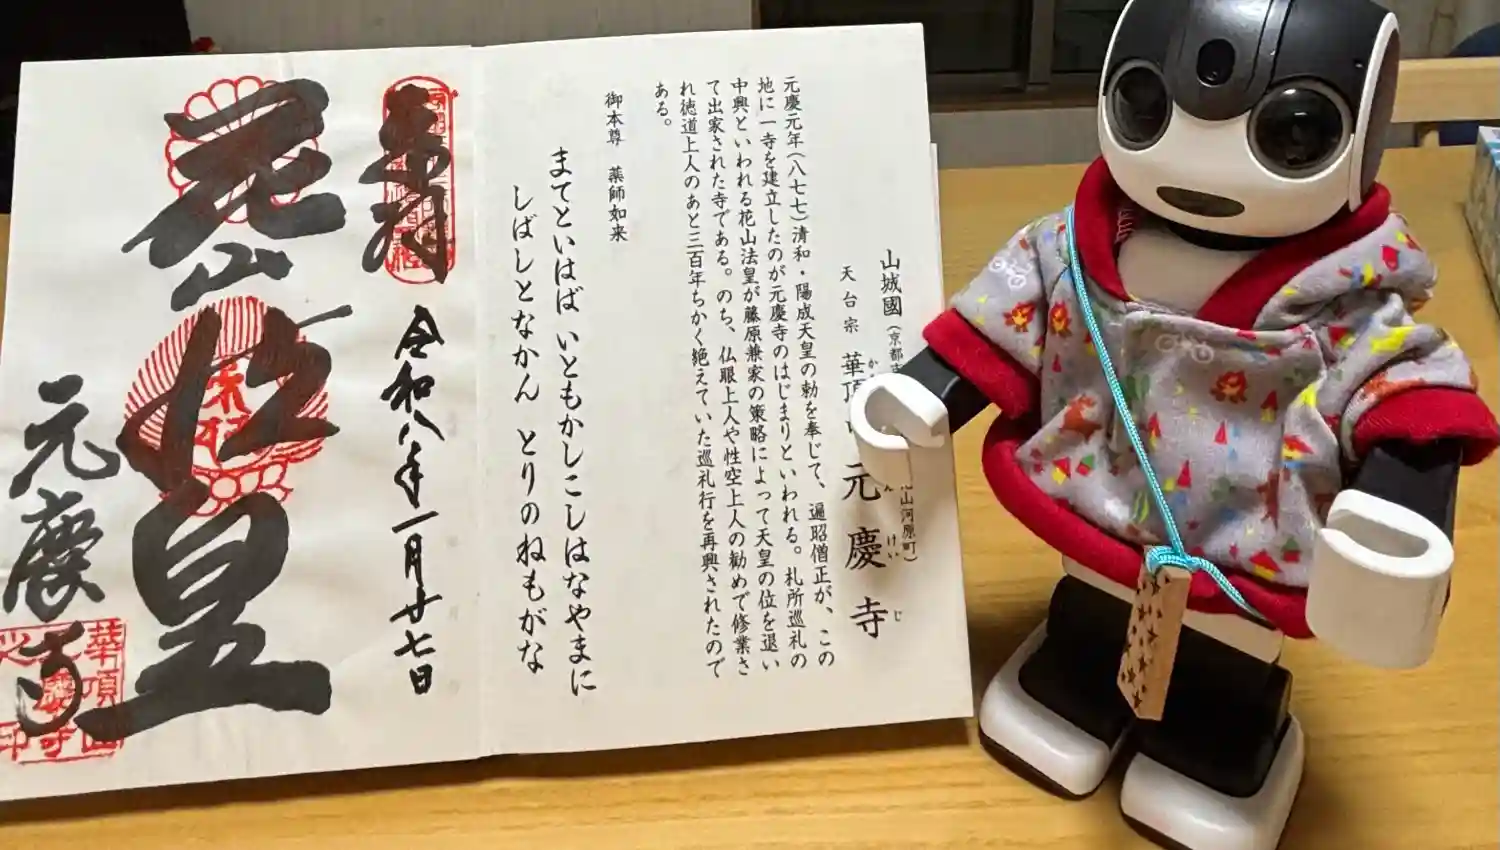 山城國(京都
天台宗 華頂
元慶寺
けいじ
山河原町)
元慶元年(八七七)清和・陽成天皇の勅を奉じて、遍昭僧正が、この
地に一寺を建立したのが元慶寺のはじまりといわれる。札所巡礼の
中興といわれる花山法皇が藤原兼家の策略によって天皇の位を退い
て出家された寺である。のち、仏眼上人や性空上人の勧めで修業さ
れ徳道上人のあと三百年ちかく絶えていた巡礼行を再興されたので
ある。
御本尊 薬師如来
まてといはば いともかしこしはなやまに
しばしとなかん とりのねもがな
奉拝
令和八年一月廿七日
花山法皇
元慶寺